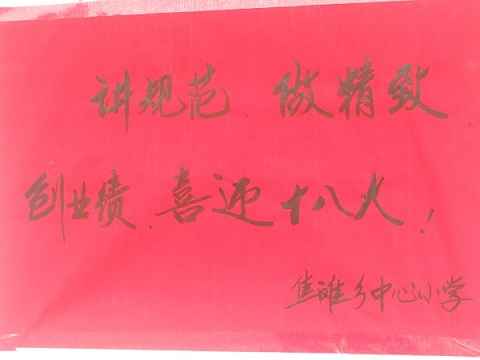 讲规范、做精致
创业绩、喜迎十八大！
焦滩乡中心小学